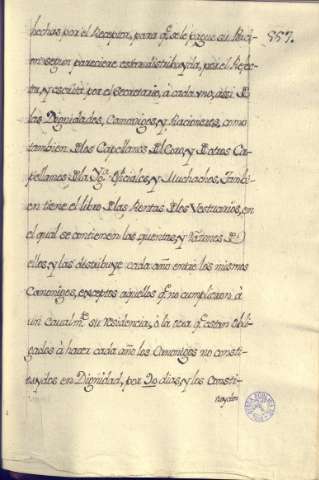 hechas por el Receptor, para q̃ se le pague su
557.
segun pareciere estar distribuyda, por el Rece-
tor, y escrita por el Secretario, à cada vno, assi D
las Dignidades, Canonigos, y Racioneros, como
tambien Dlos Capellanes Dl Coro, y Dotros Ca-
pellanes Dla Ygª Oficiales, y Muchachos. Tambi-
en tiene el libro Dlas Rentas Dlos Vestuarios, en
el qual se contienen las quentas, y D
ellos, y las distribuye cada año entre los mismos
Canonigos, exceptos aquellos q̃ no cumplieron à
un su residencia, ò la otra q̃ estan obli-
gados à hacer cada año los Canonigos no consti-
tuydos en Dignidad, por dias, y los Consti-
tuydos